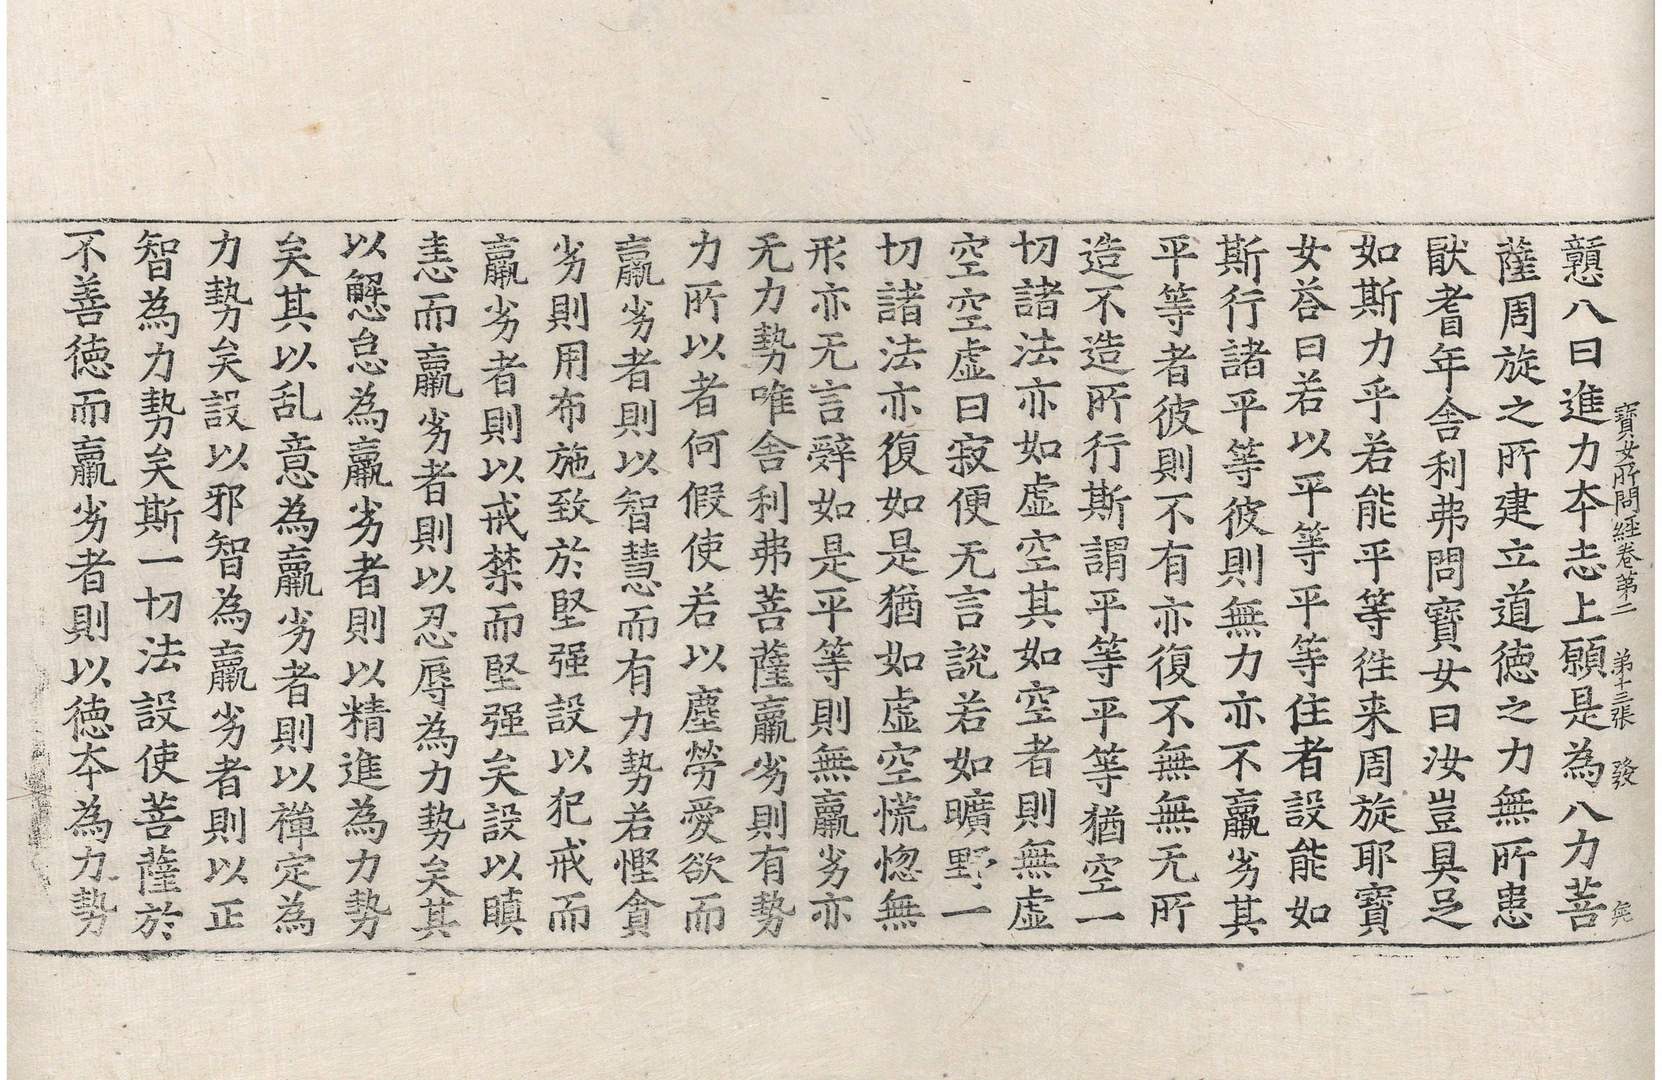 寶女所問經卷第二　第十三張　發
戇八曰進力夲志上願是為八力菩
薩周旋之所建立道徳之力無所患
猒耆年舎利弗問寶女曰汝豈具足
如斯力乎若能平等徃来周旋耶寶
女荅曰若以平等平等住者設能如
斯行諸平等彼則無力亦不羸劣其
平等者彼則不有亦復不無無无所
造不造所行斯謂平等平等猶空一
切諸法亦如虚空其如空者則無虚
空空虚曰寂便无言說若如曠野一
切諸法亦復如是猶如虚空慌惚無
形亦无言辤如是平等則無羸劣亦
无力勢唯舎利弗菩薩羸劣則有勢
力所以者何假使若以塵勞愛欲而
羸劣者則以智慧而有力勢若慳貪
劣則用布施致於堅强設以犯戒而
羸劣者則以戒禁而堅强矣設以瞋
恚而羸劣者則以忍辱為力勢矣其
以懈怠為羸劣者則以精進為力勢
矣其以乱意為羸劣者則以禅定為
力勢矣設以邪智為羸劣者則以正
智為力勢矣斯一切法設使菩薩於
不善徳而羸劣者則以徳夲為力勢